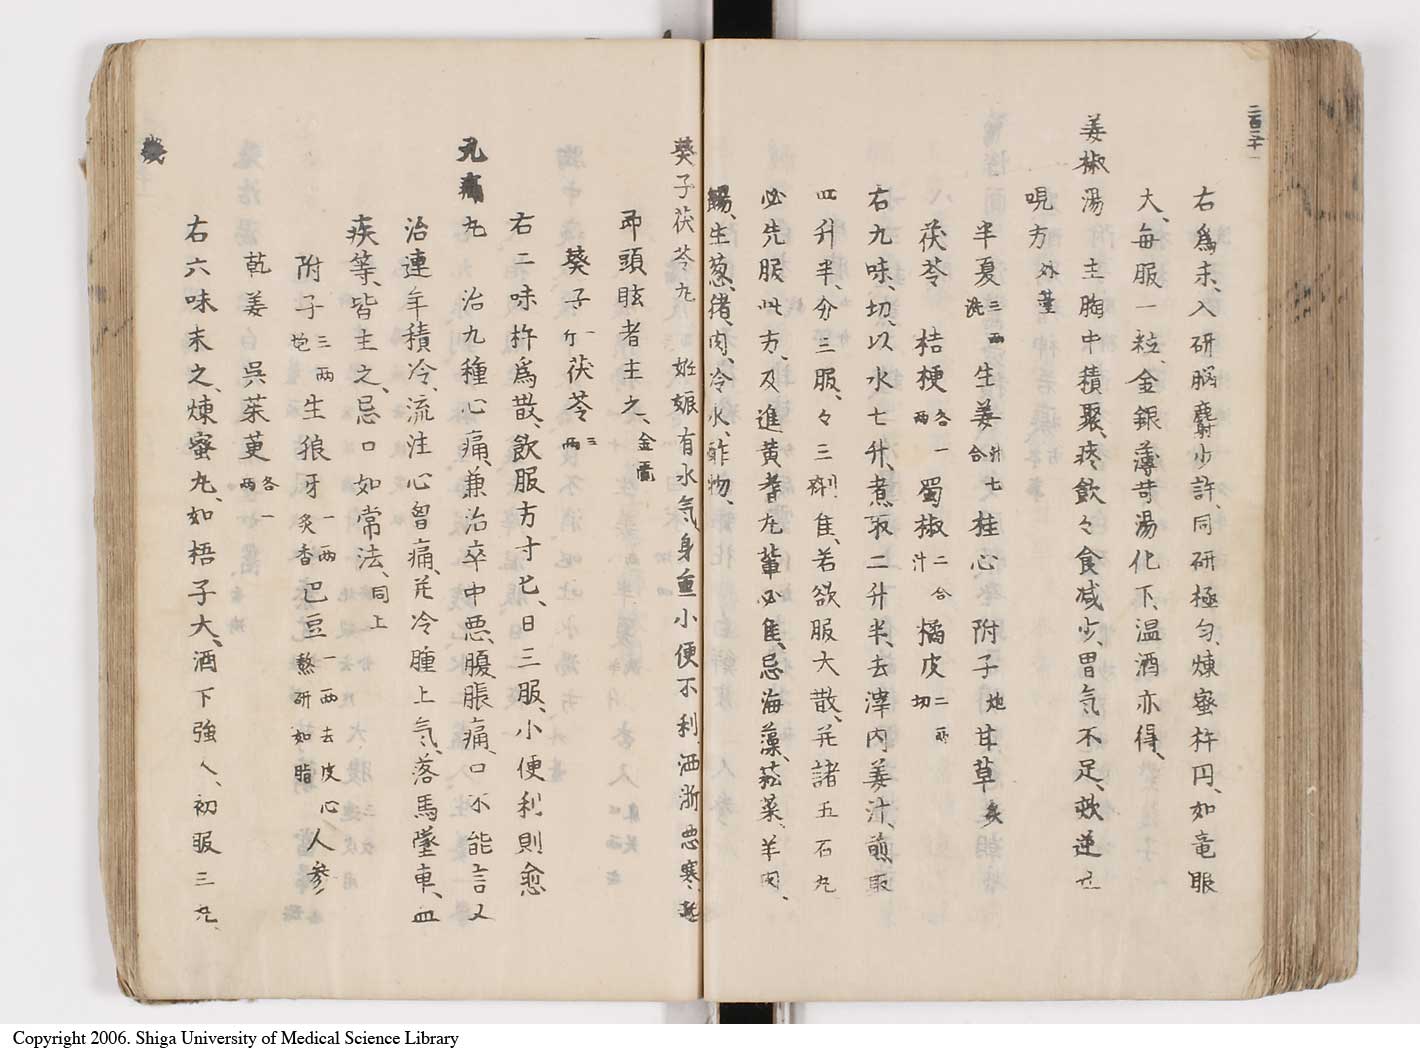 二百二十一
右爲末、入研脳麝少許、同研極匀、煉蜜杵円、如竜眼
大、毎服一粒、金銀薄荷湯化下、温酒亦得、
姜椒湯 主胸中積聚、痰飲々食减少、胃气不足、欬逆
呪方 外臺
半夏 三両洗 生姜 汁七合 桂心 附子 炮 甘草 炙
茯苓 桔梗 各一両 蜀椒 二合汁 橘皮 二両切
右九味、切、以水七升、煮取二升半、去滓内姜汁、煎取
四升半、分三服、々三劑隹、若欲服大散、并諸五石丸
必先服此方、及進黄耆丸輩必隹、忌海藻、菘菜、羊肉、
餳、生葱、猪肉、冷水、酢物、
葵子茯苓丸 妊娠有水气、身重小便不利、洒淅悪寒、起
即頭眩者主之、金匱
葵子 一斤 茯苓 三両
右二味杵爲散、飲服方寸匕、日三服、小便利則愈
九痛丸 治九種心痛、兼治卒中悪、腹脹痛、口不能言又
治連年積冷、流注心胷痛、并冷腫上气、落馬墜車、血
疾等、皆主之、忌口如常法、同上
附子 三両炮 生狼牙 一両炙香 巴豆 一両去皮心熬研如脂 人参
乾姜 呉茱萸 各一両
右六味末之、煉蜜丸、如梧子大、酒下強人、初服三丸、